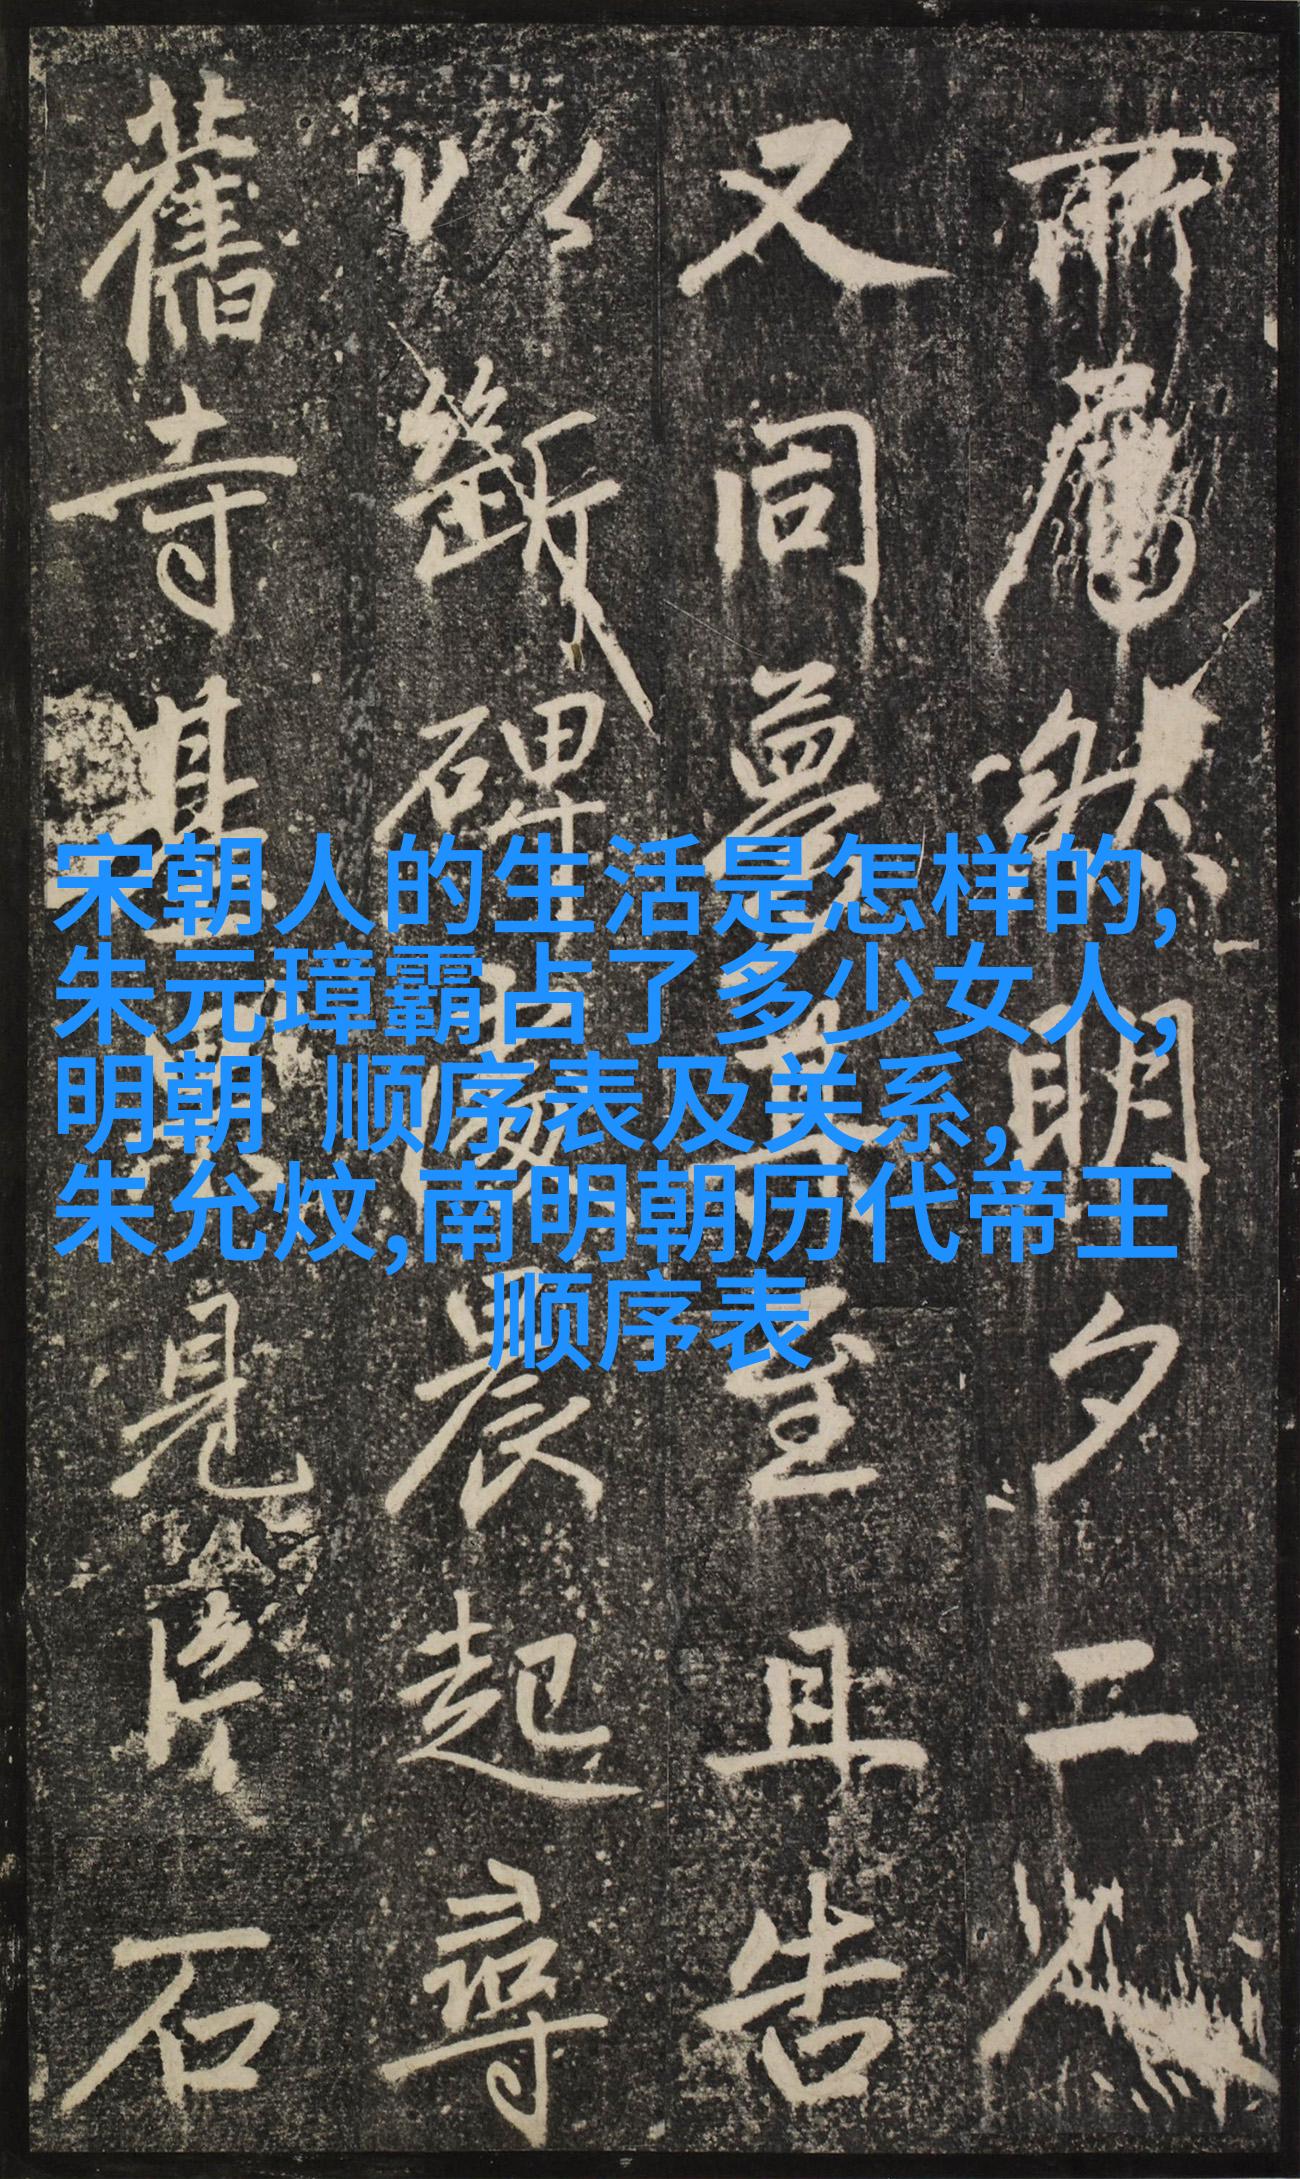 所然明夕二
又同夢其至且告
以斷碑處晨起尋
舊寺基果見片石
宋朝人的生活是怎样的,
朱元璋霸占了多少女人,
明朝 顺序表及关系,
朱允炆,南明朝历代帝王
顺序表